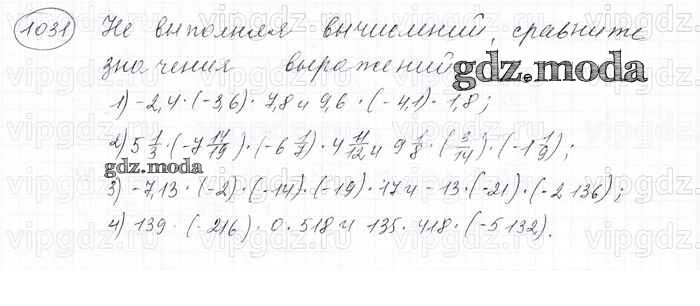 1031 Не выполняя вычислений, сравните
значения выражений
gdz.moda
1) -2,4·(-3,6)·7,8 и 9,6·(-4,1)·1,8;
2) 5 1/3·(-7 14/19)·(-6 1/7)·4 11/12 и 9 1/8·(3/14)·(-1 1/9);
gdz.moda
3) -7,13·(-2)·(-14)·(-19)·17 и -13·(-21)·(-2 136);
4) 139·(-216)·0·518 и 135·418·(-5 132).